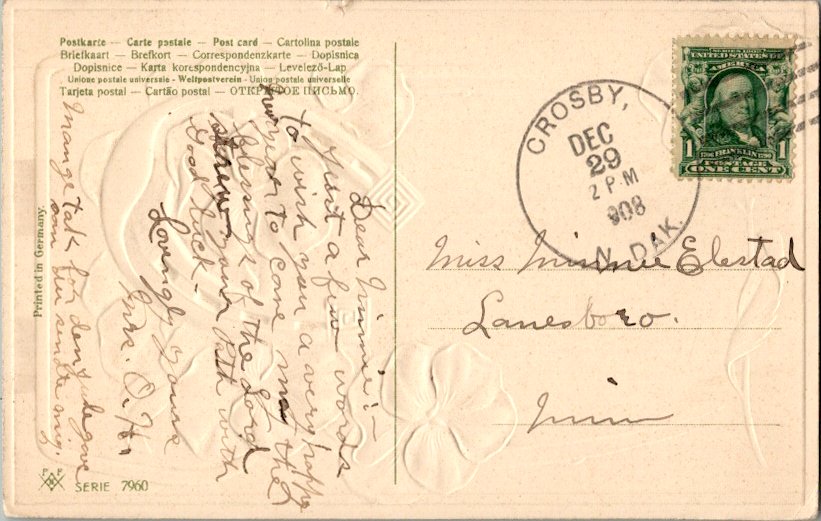 Postkarte — Carte postale — Post card — Cartolina postale
Briefkaart — Brefkort — Correspondenzkarte — Dopisnica
Dopisnice — Karta korespondencyjna — Levelező-Lap
Unione postale universale - Weltpostverein - Union postale universelle
Tarjeta postal — Cartão postal — ОТКРЫТОЕ ПИСЬМО.
Dear Minnie:—
Just a few words
to wish you a very happy
new year to come may the
blessings of the Lord
strew your path with
good luck.
Lovingly yours
Mrs. O. H.
Mange tak for den
som du sendte mig.
Printed in Germany.
SERIE 7960
CROSBY,
DEC
29
2 P.M
908
N. DAK.
SERIES 1902
UNITED STATES OF
AMERICA
1 1706 FRANKLIN 1790 1
POSTAGE
ONE CENT
Miss Minnie Elestad
Lanesboro.
Minn